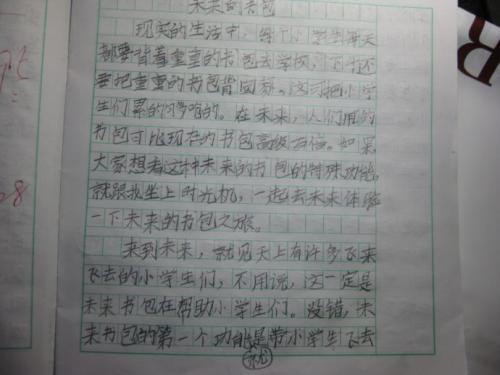 未来的书包
现实的生活中，每个小学生每天
都要背着重重的书包去学校，下午还
要把重重的书包背回家。这可把小学
生们累的够呛的。在未来，人们用的
书包可比现在的书包高级百倍。如果
大家想看这种未来的书包的特殊功能，
就跟我坐上时光机，一起去未来体验
一下未来的书包之旅。
来到未来，就见天上有许多飞来
飞去的小学生们，不用说，这一定是
未来书包在帮助小学生们。没错，未
来书包的第一个功能是带小学生飞去